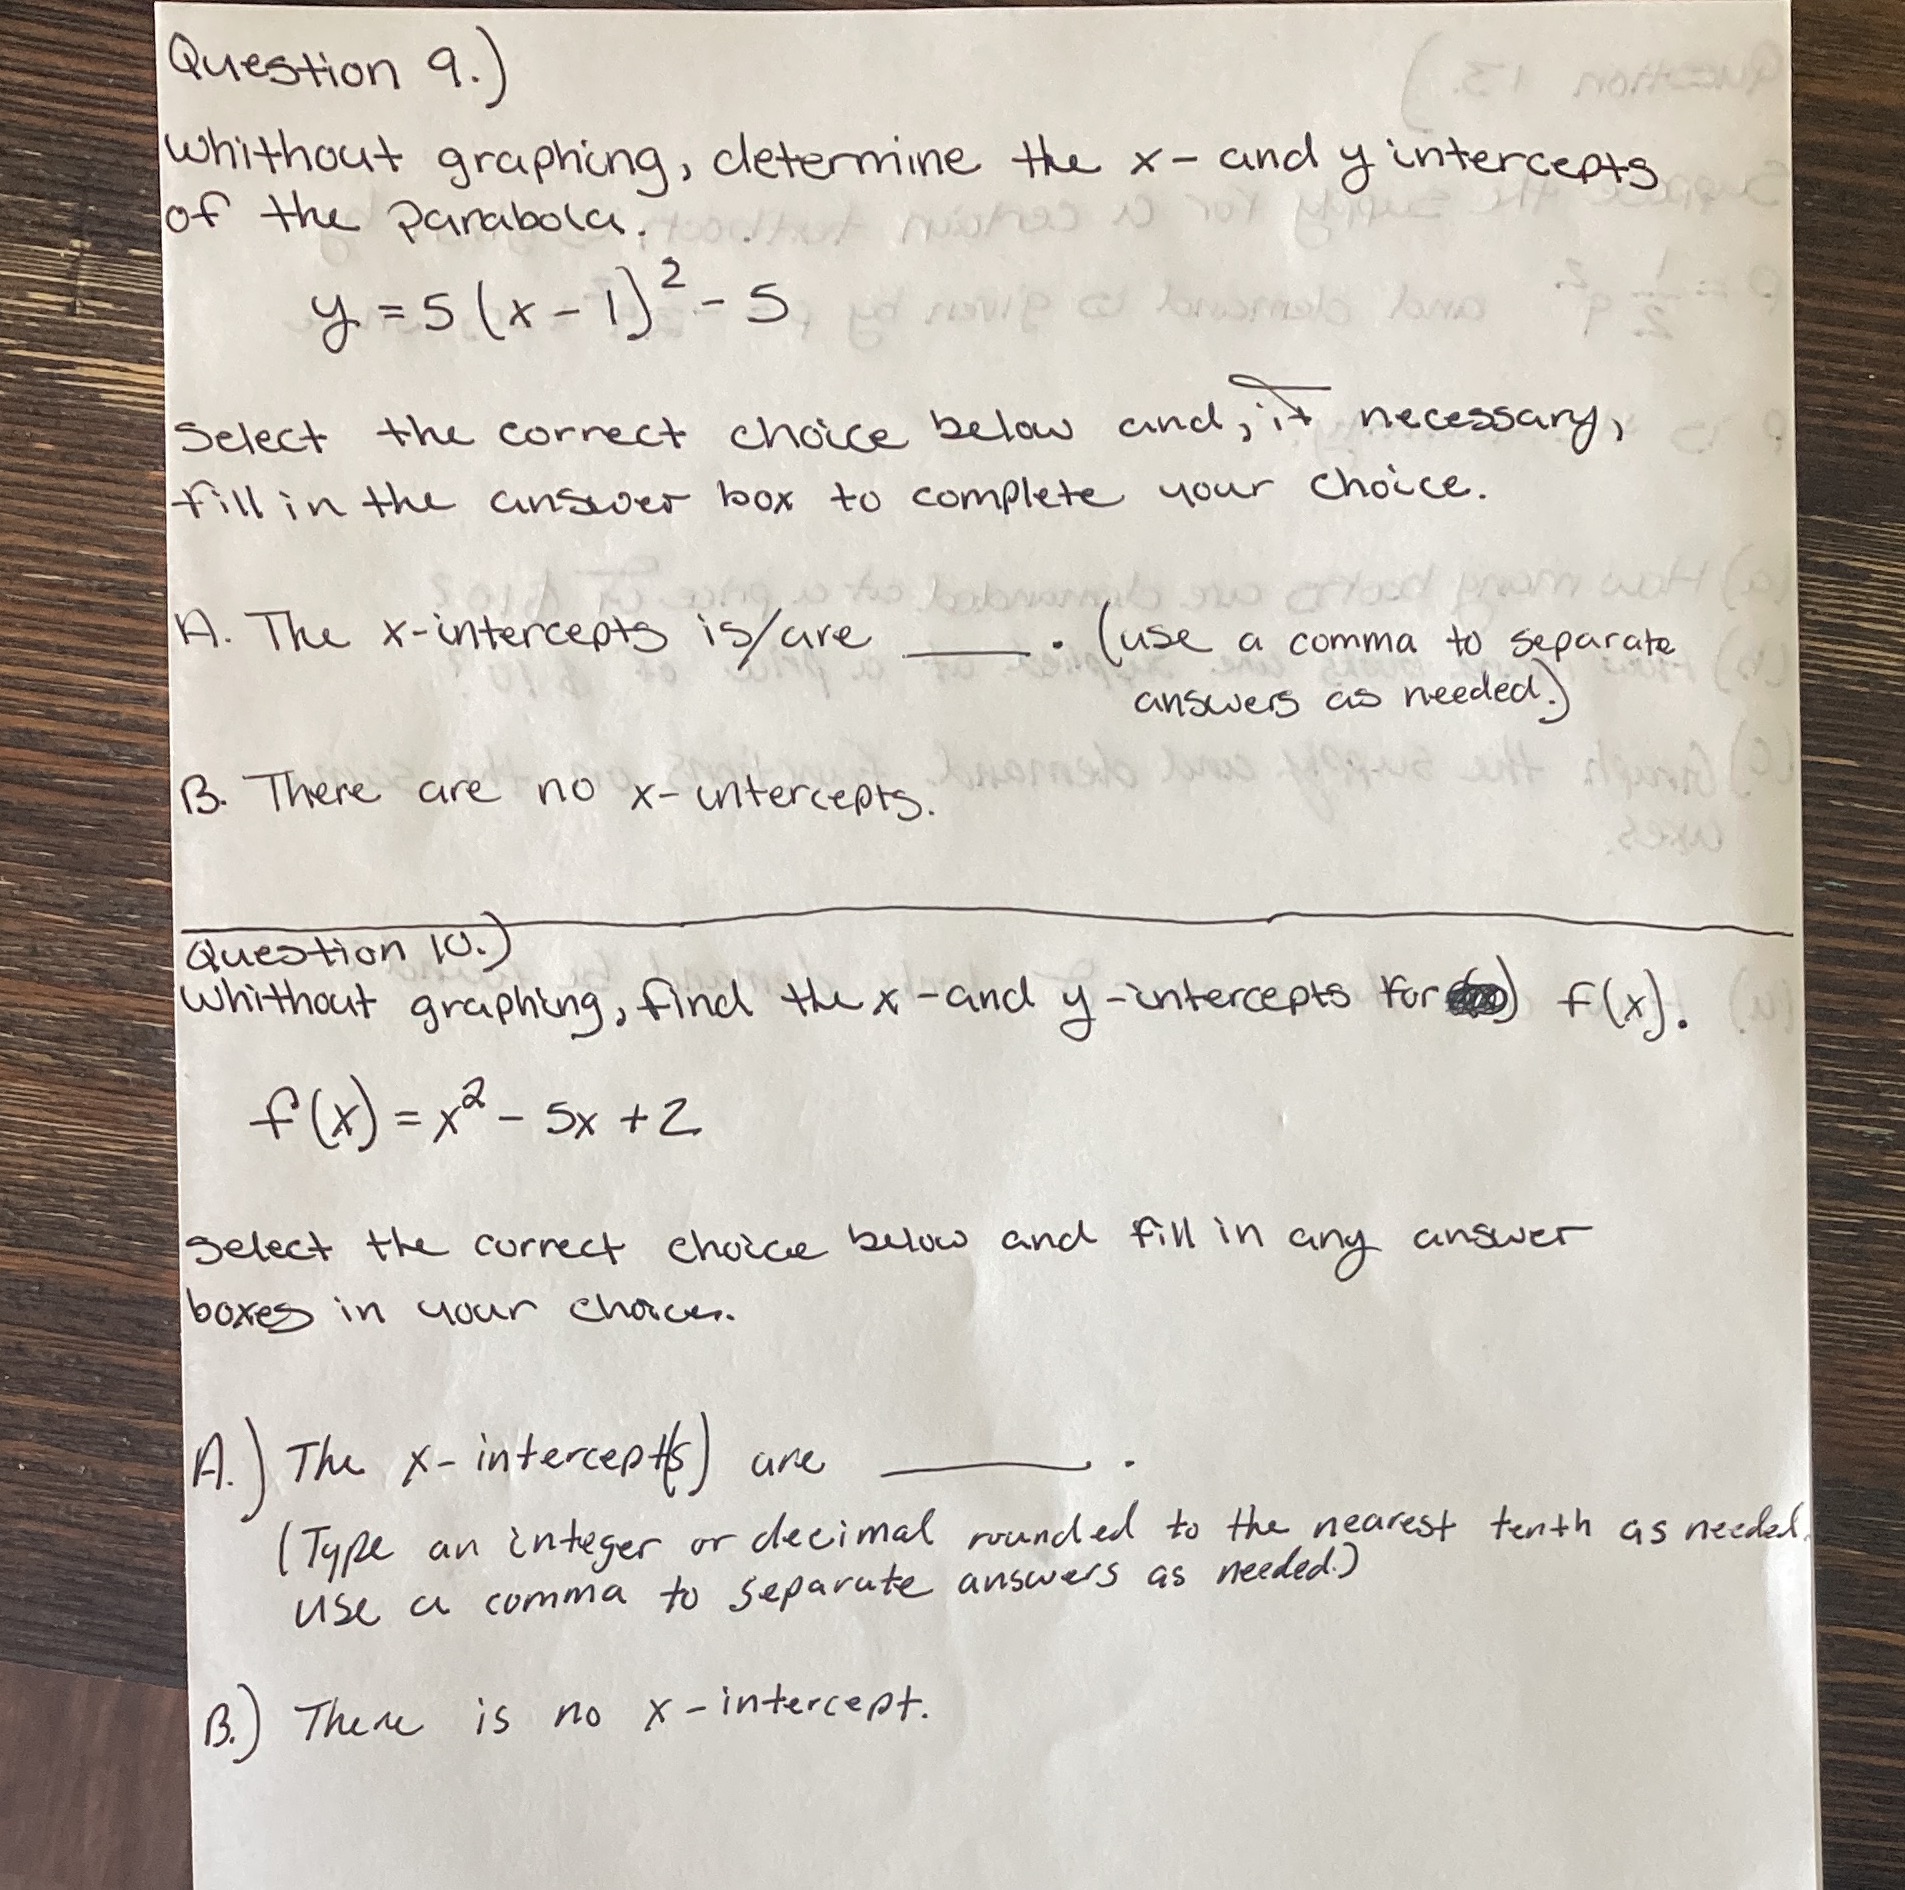 Question 9.)
Whithout graphing, determine the x- and y intercepts
of the parabola.
y = 5(x - 1)² - 5
Select the correct choice below and, if necessary,
fill in the answer box to complete your choice.
A. The x-intercepts is/are ____. (use a comma to separate
answers as needed.)
B. There are no x-intercepts.
Question 10.)
Whithout graphing, find the x-and y-intercepts for f(x).
f(x) = x² - 5x + 2
Select the correct choice below and fill in any answer
boxes in your choices.
A.) The x-intercept(s) are ____.
(Type an integer or decimal rounded to the nearest tenth as needed.
use a comma to separate answers as needed.)
B.) There is no x-intercept.